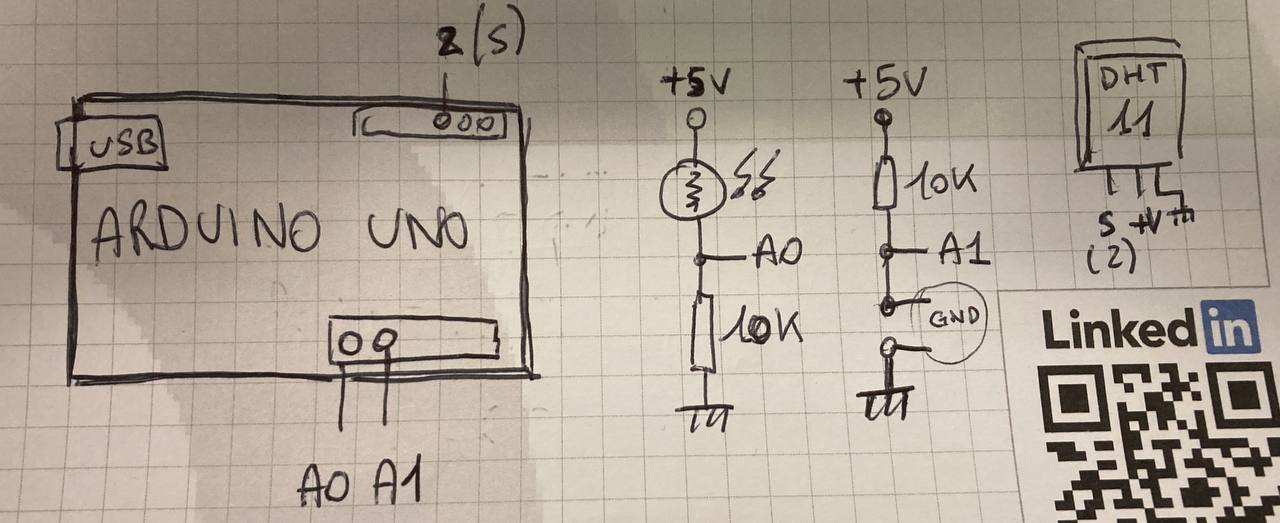 2(S)
USB
ARDUINO UNO
A0 A1
+5V
A0
10K
+5V
10K
A1
GND
DHT
11
S +V
(2)
Linked in